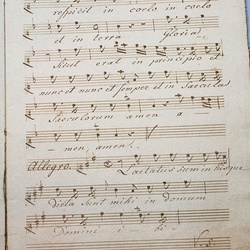 respicit in coelo in coelo
et in terra Gloria
Sicut erat in principio et
nunc et nunc et semper et in Saecula
Saeculorum amen a-
men, amen.
Allegro. Laetatus sum in his quae
Dicta sunt mihi in domum
Domini i bi-